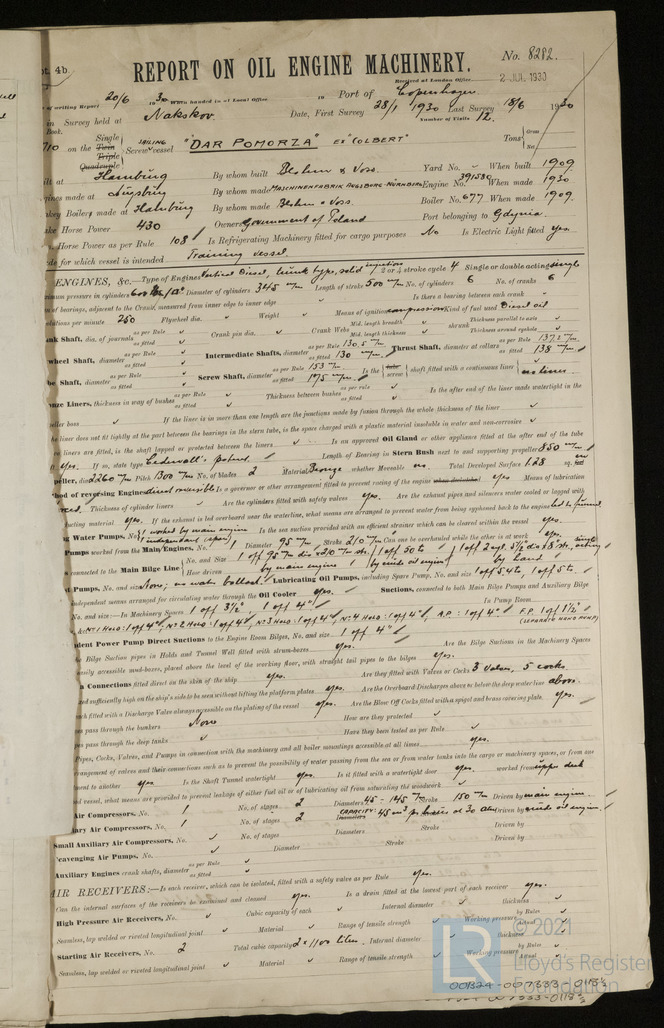 pt. 4b.
REPORT ON OIL ENGINE MACHINERY.
No. 8282.
Received at London Office 2 JUL 1930
of writing Report 20/6 1930 When handed in at Local Office 19 Port of Copenhagen
in Survey held at Nakskov. Date, First Survey 28/1 1930 Last Survey 18/6 1930
Book. Number of Visits 12.
710 on the Single Twin Triple Quadruple Screw vessel SAILING "DAR POMORZA" ex "COLBERT" Tons Gross Net
ilt at Hamburg By whom built Blohm & Voss. Yard No. When built 1909
gines made at Augsburg By whom made MASCHINENFABRIK AUGSBURG-NÜRNBERG Engine No. 391580 When made 1930
key Boilers made at Hamburg By whom made Blohm & Voss. Boiler No. 677 When made 1909.
ke Horse Power 430 Owners Government of Poland Port belonging to Gdynia.
Horse Power as per Rule 108 Is Refrigerating Machinery fitted for cargo purposes No Is Electric Light fitted yes.
de for which vessel is intended Training vessel.
ENGINES, &c.—Type of Engines Vertical Diesel, trunk type, solid injection 2 or 4 stroke cycle 4 Single or double acting single
ximum pressure in cylinders Diameter of cylinders 345 m/m Length of stroke 500 m/m No. of cylinders 6 No. of cranks 6
of bearings, adjacent to the Crank, measured from inner edge to inner edge Is there a bearing between each crank
olutions per minute 250 Flywheel dia. Weight Means of ignition compression Kind of fuel used Diesel oil
nk Shaft, dia. of journals as per Rule as fitted Crank pin dia. Crank Webs Mid. length breadth Mid. length thickness shrunk Thickness parallel to axis Thickness around eyehole
wheel Shaft, diameter as per Rule as fitted Intermediate Shafts, diameter as per Rule 130,5 m/m as fitted 130 m/m. Thrust Shaft, diameter as per Rule 137,2 m/m as fitted 138 m/m
be Shaft, diameter as per Rule as fitted Screw Shaft, diameter as per Rule 153 m/m. as fitted 175 m/m. Is the tube screw shaft fitted with a continuous liner no liner
nze Liners, thickness in way of bushes as per Rule as fitted Thickness between bushes as per rule as fitted Is the after end of the liner made watertight in the
eller boss If the liner is in more than one length are the junctions made by fusion through the whole thickness of the liner
he liner does not fit tightly at the part between the bearings in the stern tube, is the space charged with a plastic material insoluble in water and non-corrosive
o liners are fitted, is the shaft lapped or protected between the liners Is an approved Oil Gland or other appliance fitted at the after end of the tube
yes. If so, state type Cedervall's patent Length of Bearing in Stern Bush next to and supporting propeller 850 m/m
peller, dia 2260 m/m Pitch 1300 m/m No. of blades 2 Material Bronze whether Moveable no. Total Developed Surface 1.28 sq.
hod of reversing Engines direct reversible Is a governor or other arrangement fitted to prevent racing of the engine yes Means of lubrication
forced. Thickness of cylinder liners Are the cylinders fitted with safety valves yes. Are the exhaust pipes and silencers water cooled or lagged with
nducting material yes. If the exhaust is led overboard near the waterline, what means are arranged to prevent water from being syphoned back to the engine led to funnel
ng Water Pumps, No. 1 worked by main engine 1 independent (spare) Is the sea suction provided with an efficient strainer which can be cleared within the vessel yes.
Pumps worked from the Main Engines, No. 1 Diameter 95 m/m Stroke 210 m/m Can one be overhauled while the other is at work yes.
s connected to the Main Bilge Line No. and Size 1 off 95 m/m dia x 210 m/m str. 1 off 50 to How driven by main engine by aux. oil engine by hand
st Pumps, No. and size None, no water ballast. Lubricating Oil Pumps, including Spare Pump, No. and size 1 off 54 to, 1 off 5 to.
independent means arranged for circulating water through the Oil Cooler yes. Suctions, connected to both Main Bilge Pumps and Auxiliary Bilge
No. and size:—In Machinery Spaces 1 off 3½" 1 off 4"
No 1 HOLD: 1 off 4", No 2 HOLD: 1 off 4", No 3 HOLD: 1 off 4", No 4 HOLD: 1 off 4", A.P.: 1 off 4". F.P. 1 off 1½" (SEPARATE HAND PUMP)
dent Power Pump Direct Suctions to the Engine Room Bilges, No. and size 1 off 4"
e Bilge Suction pipes in Holds and Tunnel Well fitted with strum-boxes yes. Are the Bilge Suctions in the Machinery Spaces
easily accessible mud-boxes, placed above the level of the working floor, with straight tail pipes to the bilges yes.
a Connections fitted direct on the skin of the ship yes. Are they fitted with Valves or Cocks 3 valves, 5 cocks.
xed sufficiently high on the ship's side to be seen without lifting the platform plates yes. Are the Overboard Discharges above or below the deep water line above.
ach fitted with a Discharge Valve always accessible on the plating of the vessel yes. Are the Blow Off Cocks fitted with a spigot and brass covering plate yes.
es pass through the bunkers None How are they protected
pes pass through the deep tanks Have they been tested as per Rule
Pipes, Cocks, Valves, and Pumps in connection with the machinery and all boiler mountings accessible at all times yes.
rangement of valves and their connections such as to prevent the possibility of water passing from the sea or from water tanks into the cargo or machinery spaces, or from one
ment to another yes. Is the Shaft Tunnel watertight yes. Is it fitted with a watertight door yes. worked from upper deck
od vessel, what means are provided to prevent leakage of either fuel oil or of lubricating oil from saturating the woodwork
Air Compressors, No. 1 No. of stages 2 Diameters 45 - 145 m/m Stroke 150 m/m Driven by main engine.
iary Air Compressors, No. 1 No. of stages 2 Diameters CAPACITY: 45 m³ at 30 Driven by aux. oil engine.
Small Auxiliary Air Compressors, No. No. of stages Diameters Stroke Driven by
Scavenging Air Pumps, No. Diameter Stroke Driven by
Auxiliary Engines crank shafts, diameter as per Rule as fitted
AIR RECEIVERS:—Is each receiver, which can be isolated, fitted with a safety valve as per Rule yes.
Can the internal surfaces of the receivers be examined and cleaned yes. Is a drain fitted at the lowest part of each receiver yes.
High Pressure Air Receivers, No. Cubic capacity of each Internal diameter thickness
Seamless, lap welded or riveted longitudinal joint Material Range of tensile strength Working pressure by Rules Actual
Starting Air Receivers, No. 2 Total cubic capacity 2 x 1100 litres. Internal diameter thickness
Seamless, lap welded or riveted longitudinal joint Material Range of tensile strength Working pressure by Rules Actual
© 2021
Lloyd's Register
Foundation
LR
001324-001333-0113½